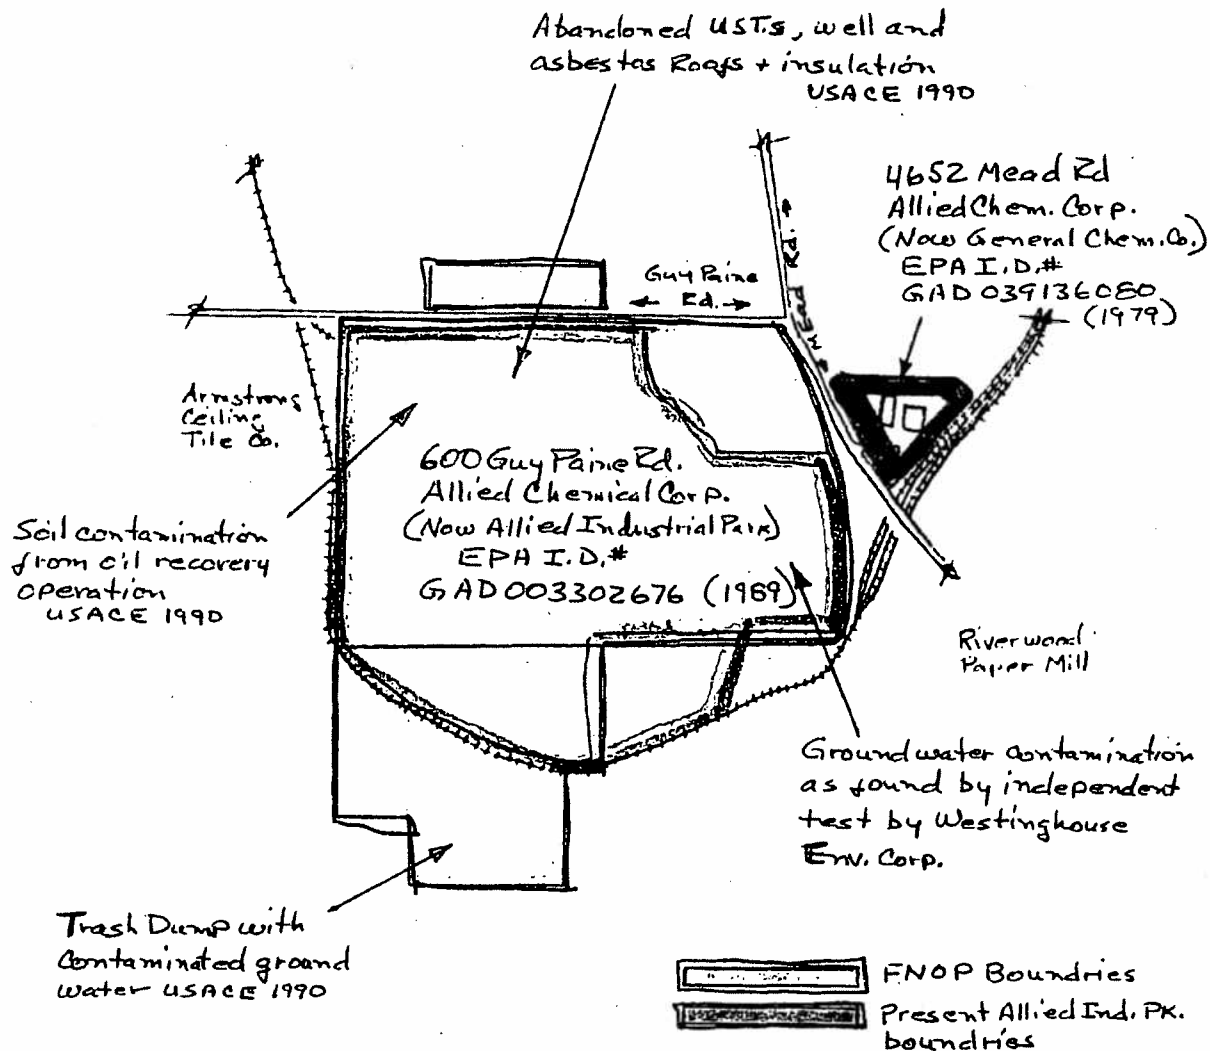 Abandoned USTs, well and
asbestos Roofs + insulation
USACE 1990
4652 Mead Rd
Allied Chem. Corp.
(Now General Chem. Co.)
EPA I.D.#
GAD 039136080
(1979)
Guy Paine
Rd.
Mead Rd.
Armstrong
Ceiling
Tile Co.
600 Guy Paine Rd.
Allied Chemical Corp.
(Now Allied Industrial Park)
EPA I.D.#
GAD 003302676 (1989)
Soil contamination
from oil recovery
operation
USACE 1990
Riverwood
Paper Mill
Groundwater contamination
as found by independent
test by Westinghouse
Env. Corp.
Trash Dump with
Contaminated ground
water USACE 1990
FNOP Boundries
Present Allied Ind. PK.
boundries